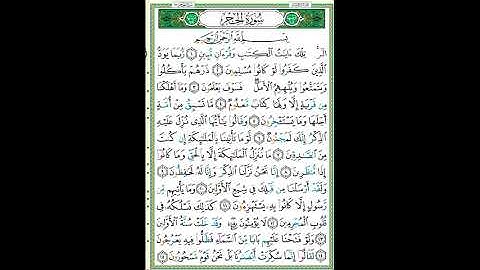 سُورَةُ الْحِجْرِ
بِسْمِ اللَّهِ الرَّحْمَٰنِ الرَّحِيمِ
الٓر ۚ تِلْكَ ءَايَٰتُ الْكِتَٰبِ وَقُرْءَانٍ مُّبِينٍ ١ رُّبَمَا يَوَدُّ
الَّذِينَ كَفَرُوا لَوْ كَانُوا مُسْلِمِينَ ٢ ذَرْهُمْ يَأْكُلُوا
وَيَتَمَتَّعُوا وَيُلْهِهِمُ الْأَمَلُ ۖ فَسَوْفَ يَعْلَمُونَ ٣ وَمَا أَهْلَكْنَا
مِن قَرْيَةٍ إِلَّا وَلَهَا كِتَابٌ مَّعْلُومٌ ٤ مَّا تَسْبِقُ مِنْ أُمَّةٍ
أَجَلَهَا وَمَا يَسْتَـْٔخِرُونَ ٥ وَقَالُوا يَٰٓأَيُّهَا الَّذِي نُزِّلَ عَلَيْهِ
الذِّكْرُ إِنَّكَ لَمَجْنُونٌ ٦ لَّوْ مَا تَأْتِينَا بِالْمَلَٰٓئِكَةِ إِن كُنتَ
مِنَ الصَّٰدِقِينَ ٧ مَا نُنَزِّلُ الْمَلَٰٓئِكَةَ إِلَّا بِالْحَقِّ وَمَا كَانُوا
إِذًا مُّنظَرِينَ ٨ إِنَّا نَحْنُ نَزَّلْنَا الذِّكْرَ وَإِنَّا لَهُ لَحَٰفِظُونَ ٩
وَلَقَدْ أَرْسَلْنَا مِن قَبْلِكَ فِي شِيَعِ الْأَوَّلِينَ ١٠ وَمَا يَأْتِيهِم مِّن
رَّسُولٍ إِلَّا كَانُوا بِهِ يَسْتَهْزِءُونَ ١١ كَذَٰلِكَ نَسْلُكُهُ فِي
قُلُوبِ الْمُجْرِمِينَ ١٢ لَا يُؤْمِنُونَ بِهِ ۖ وَقَدْ خَلَتْ سُنَّةُ الْأَوَّلِينَ
١٣ وَلَوْ فَتَحْنَا عَلَيْهِم بَابًا مِّنَ السَّمَاءِ فَظَلُّوا فِيهِ يَعْرُجُونَ
١٤ لَقَالُوا إِنَّمَا سُكِّرَتْ أَبْصَٰرُنَا بَلْ نَحْنُ قَوْمٌ مَّسْحُورُونَ ١٥